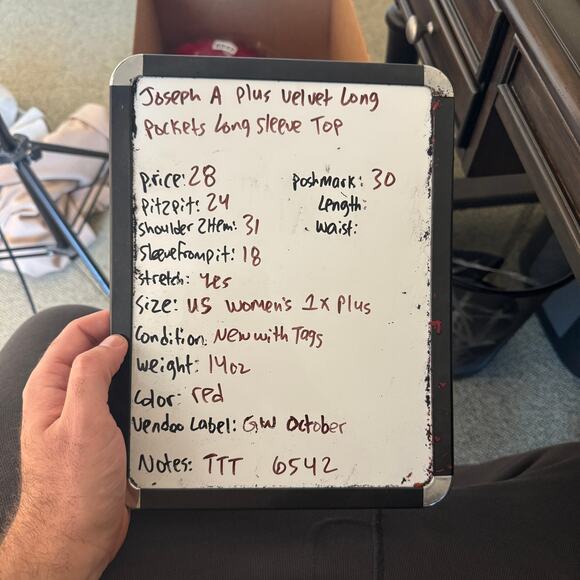 Joseph A Plus Velvet Long
Pockets Long Sleeve Top
Price: 28
Poshmark: 30
Pit2pit: 24
Length:
Shoulder 2Hem: 31
Waist:
Sleevefrompit: 18
Stretch: Yes
Size: US Women's 1x Plus
Condition: New with Tags
Weight: 14oz
Color: red
Vendoo Label: GW October
Notes: TTT 6542